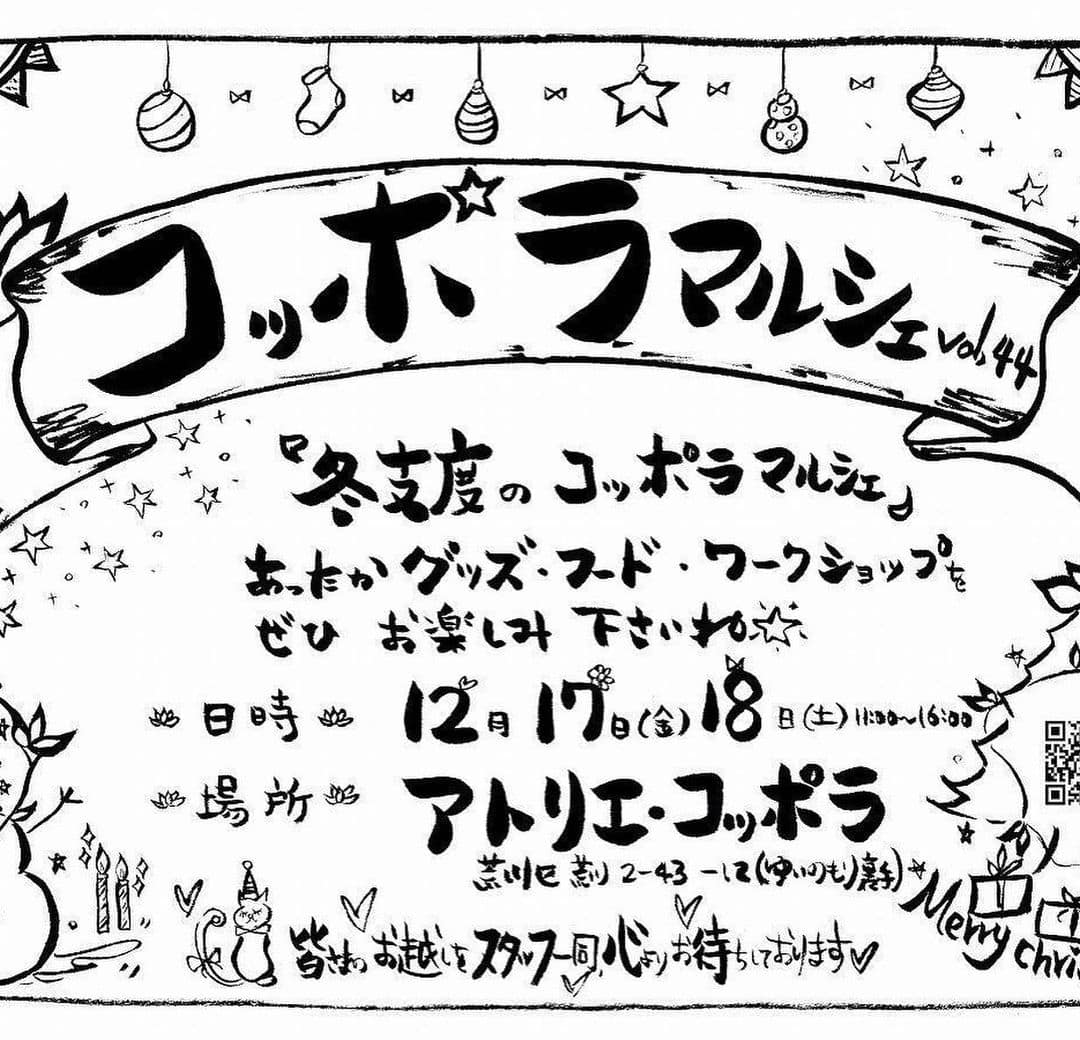 コッポラマルシェ vol.44
『冬支度の コッポラマルシェ』
あったかグッズ・フード・ワークショップを
ぜひ お楽しみ下さいね
日時 12月17日(金)18日(土)11:00~16:00
場所 アトリエ・コッポラ
荒川区 荒川 2-43-12(ゆいのもり裏手)
皆さまのお越しをスタッフ一同、心よりお待ちしております
Merry
Chri